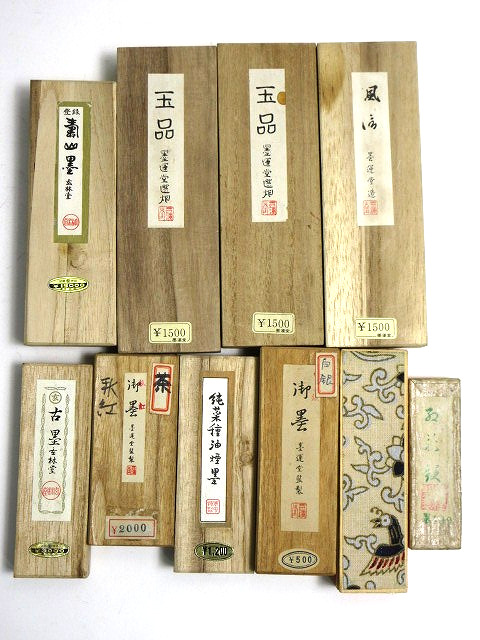 登録
壽山墨
玄林堂
玉品
墨運堂選烟
¥1500
墨運堂
玉品
墨運堂選烟
¥1500
墨運堂
風
墨運堂造
¥1500
墨運堂
玄
古墨
玄林堂
茶
御墨
墨運堂監製
¥2000
純菜種油煙墨
¥1,200
白銀
御墨
墨運堂監製
¥500